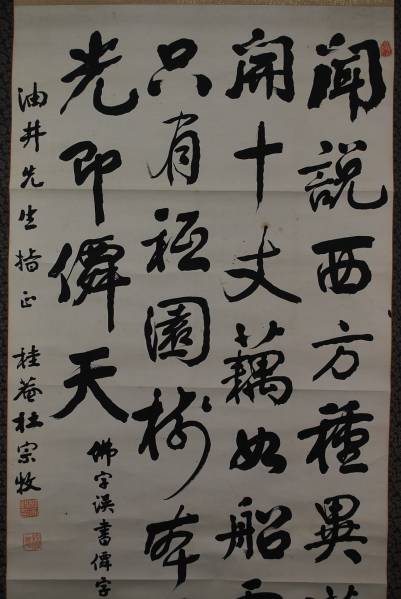 聞說西方種異
開十丈藕如船
只有祇園樹本
光即僊天
佛字誤書僊字
油井先生指正 桂菴杜宗牧